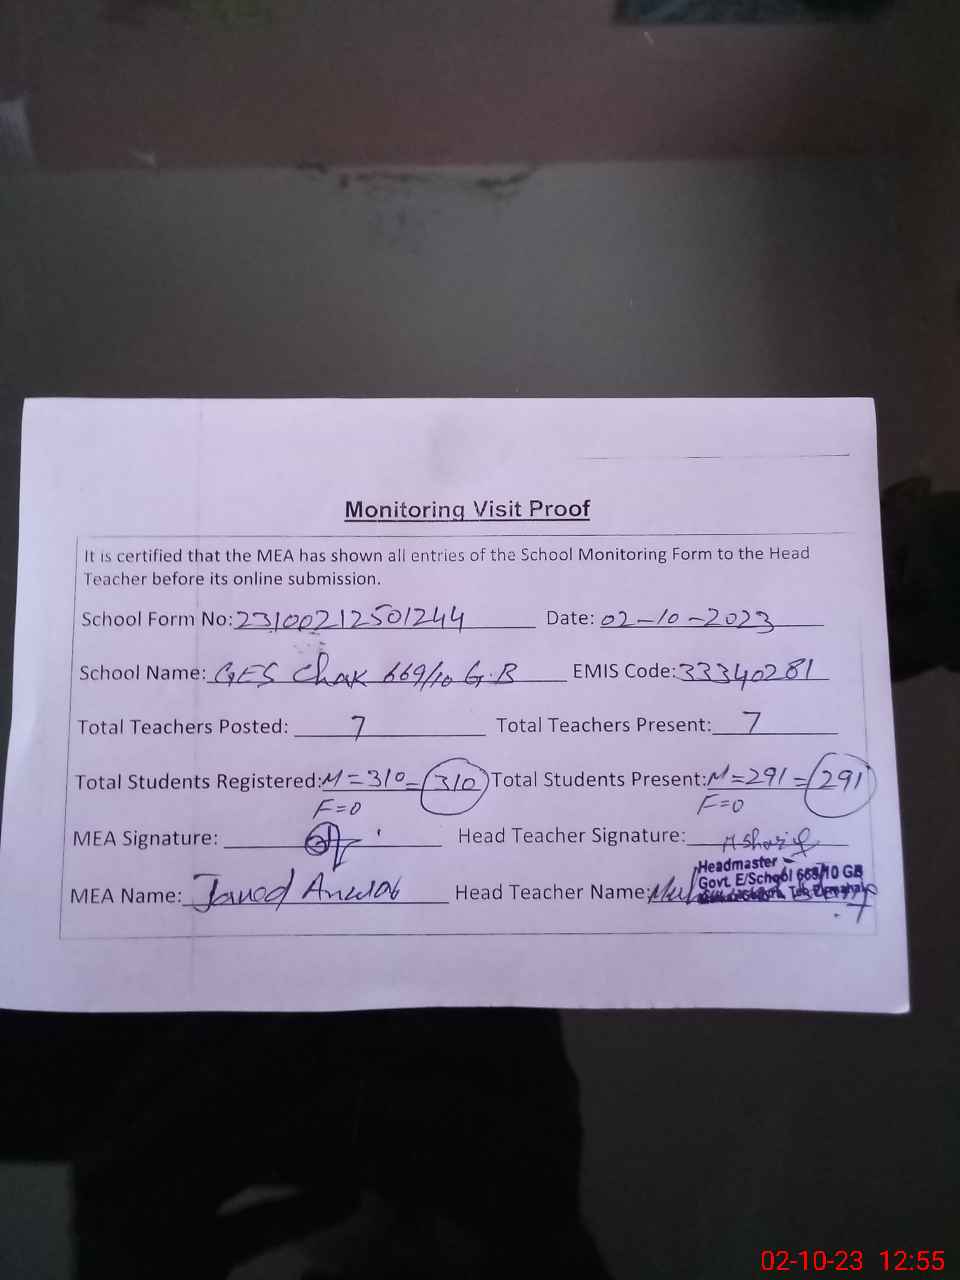 Monitoring Visit Proof
It is certified that the MEA has shown all entries of the School Monitoring Form to the Head
Teacher before its online submission.
School Form No: 23100212501244 Date: 02-10-2023
School Name: GES Chak 669/10 G.B EMIS Code: 33340281
Total Teachers Posted: 7 Total Teachers Present: 7
Total Students Registered: M=310= 310 Total Students Present: M=291= 291
F=0 F=0
MEA Signature: Head Teacher Signature: M Sharif
Headmaster
Govt. E/School 669/10 GB
MEA Name: Javed Head Teacher Name:
02-10-23 12:55